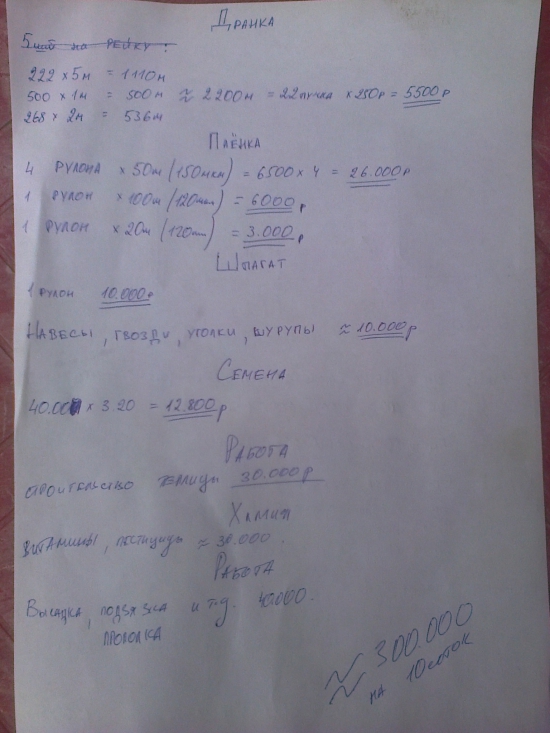 Дранка
5шт на рейку:
222 × 5м = 1110м
500 × 1м = 500м ≈ 2200м = 22 пучка × 250р = 5500р
268 × 2м = 536м
Плёнка
4 рулона × 50м (150мкм) = 6500 × 4 = 26.000р
1 рулон × 100м (120мкм) = 6000р
1 рулон × 20м (120мкм) = 3.000р
Шпагат
1 рулон 10.000р
Навесы, гвозди, уголки, шурупы ≈ 10.000р
Семена
40.00 × 3.20 = 12.800р
Работа
строительство теплицы 30.000р
Химия
Витамины, пестициды ≈ 30.000.
Работа
Высадка, подвязка и т.д. 40000.
прополка
≈ 300.000
на 10 соток